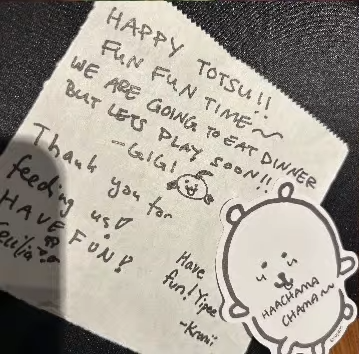 HAPPY TOTSU!!
FUN FUN TIME~
WE ARE GOING TO EAT DINNER
BUT LETS PLAY SOON!!
-GIGI
Thank you for
feeding us♡
HAVE FUN!
Cecilia
Have
fun! Yipee
-Kronii
HAACHAMA
CHAMA~